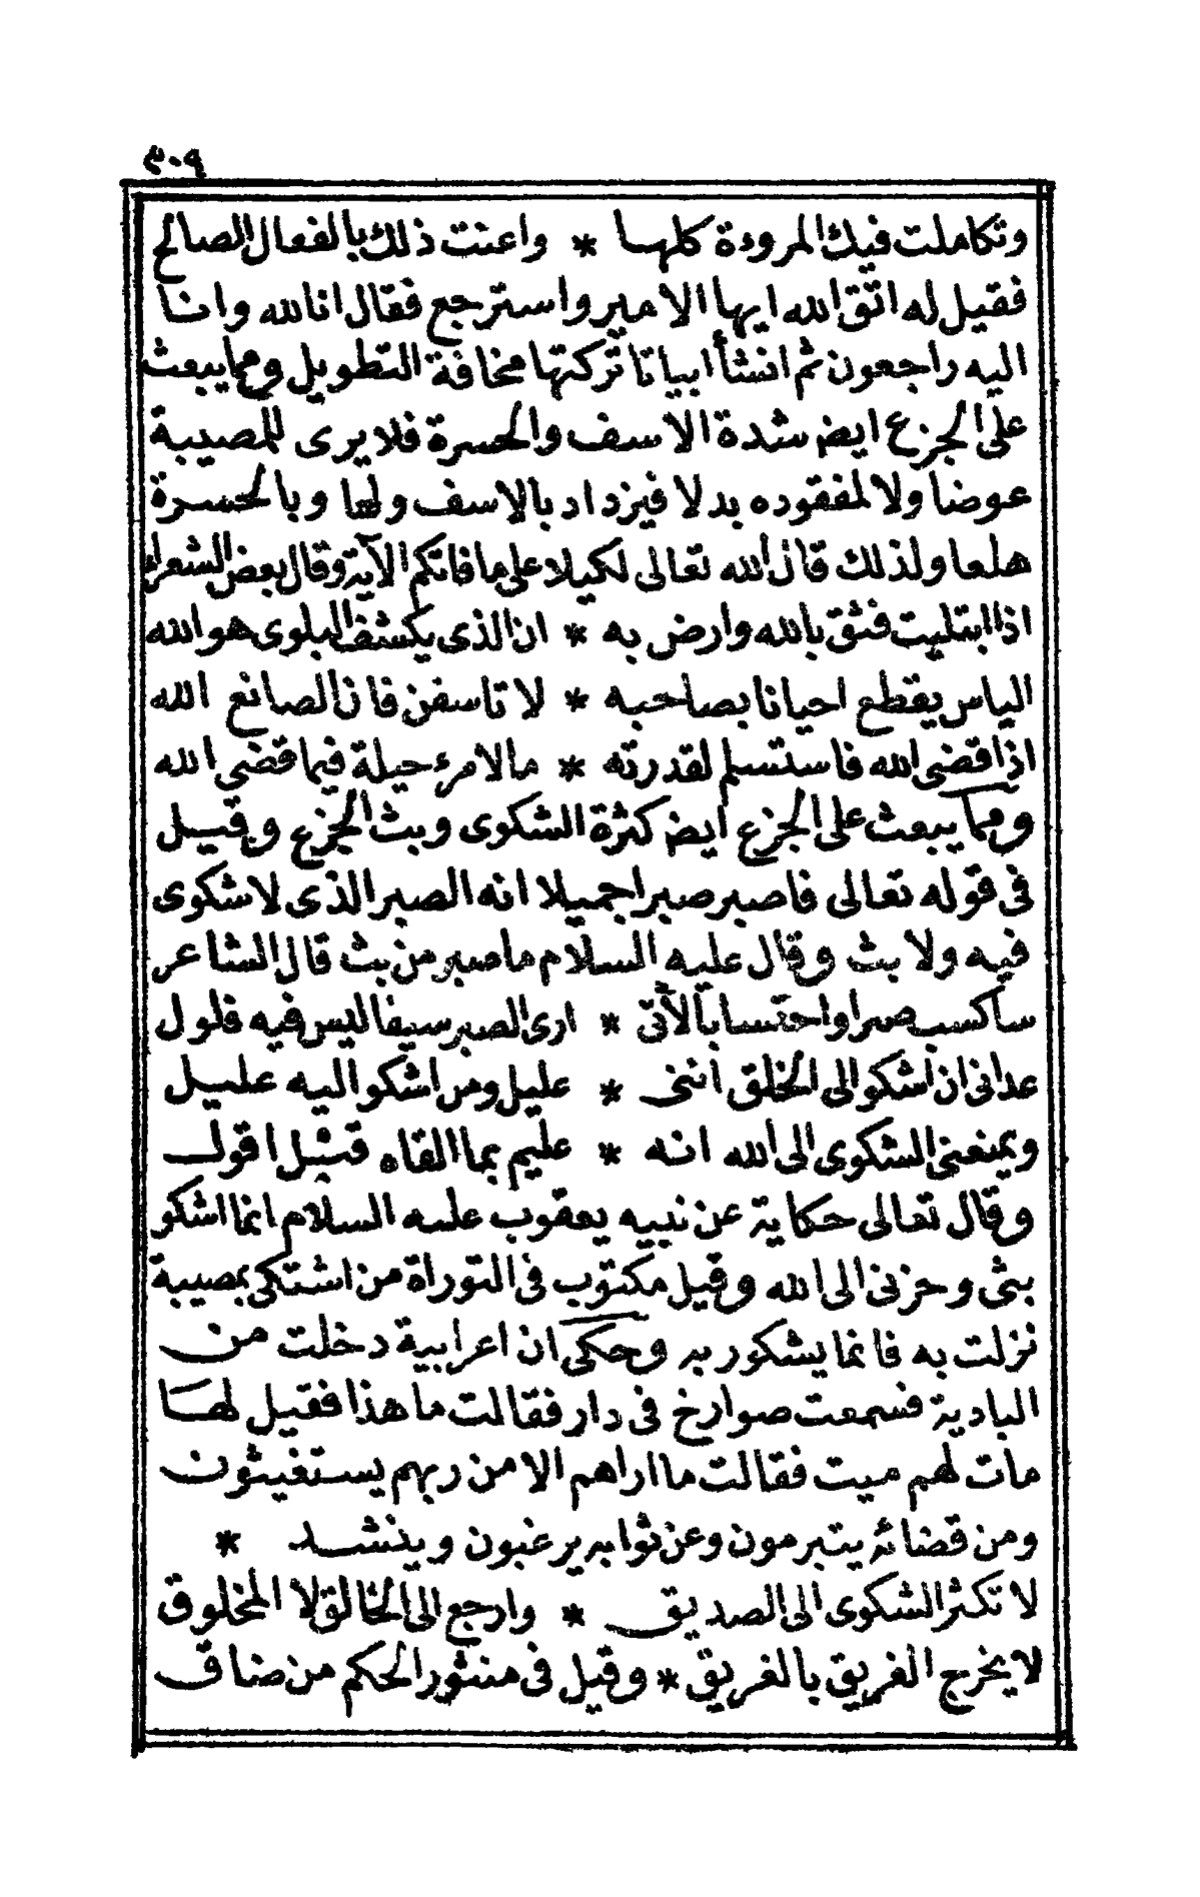 ٣٠٩
وتكاملت فيك المروءة كلها * واعنت ذلك بالفعال الصالح
فقيل له اتق الله ايها الامير واسترجع فقال انا لله وانا
اليه راجعون ثم انشأ ابياتا تركتها مخافة التطويل ومما يبعث
على الجزع ايض شدة الاسف والحسرة فلا يرى للمصيبة
عوضا ولا لمفقوده بدلا فيزداد بالاسف ولها وبالحسرة
هلعا ولذلك قال الله تعالى لكيلا على ما فاتكم الآية وقال بعض الشعراء
اذا ابتليت فثق بالله وارض به * ان الذى يكشف البلوى هو الله
الياس يقطع احيانا بصاحبه * لا تاسفن فان الصانع الله
اذا قضى الله فاستسلم لقدرته * ما لامرء حيلة فيما قضى الله
ومما يبعث على الجزع ايض كثرة الشكوى وبث الجزع وقيل
فى قوله تعالى فاصبر صبرا جميلا انه الصبر الذى لا شكوى
فيه ولا بث وقال عليه السلام ما صبر من بث قال الشاعر
ساكسب صبرا واحتسابا لأننى * ارى الصبر سيفا ليس فيه فلول
عدانى ان اشكو الى الخلق اننى * عليل ومن اشكو اليه عليل
ويمنعنى الشكوى الى الله انه * عليم بما القاه قبل اقول
وقال تعالى حكاية عن نبيه يعقوب عليه السلام انما اشكو
بثى وحزنى الى الله وقيل مكتوب فى التوراة من اشتكى بمصيبة
نزلت به فانما يشكو ربه وحكى ان اعرابية دخلت من
البادية فسمعت صوارخ فى دار فقالت ما هذا فقيل لها
مات لهم ميت فقالت ما اراهم الا من ربهم يستغيثون
ومن قضائه يتبرمون وعن ثوابه يرغبون وينشد *
لا تكثر الشكوى الى الصديق * وارجع الى الخالق لا المخلوق
لا يخرج الغريق بالغريق * وقيل فى منثور الحكم من ضاق